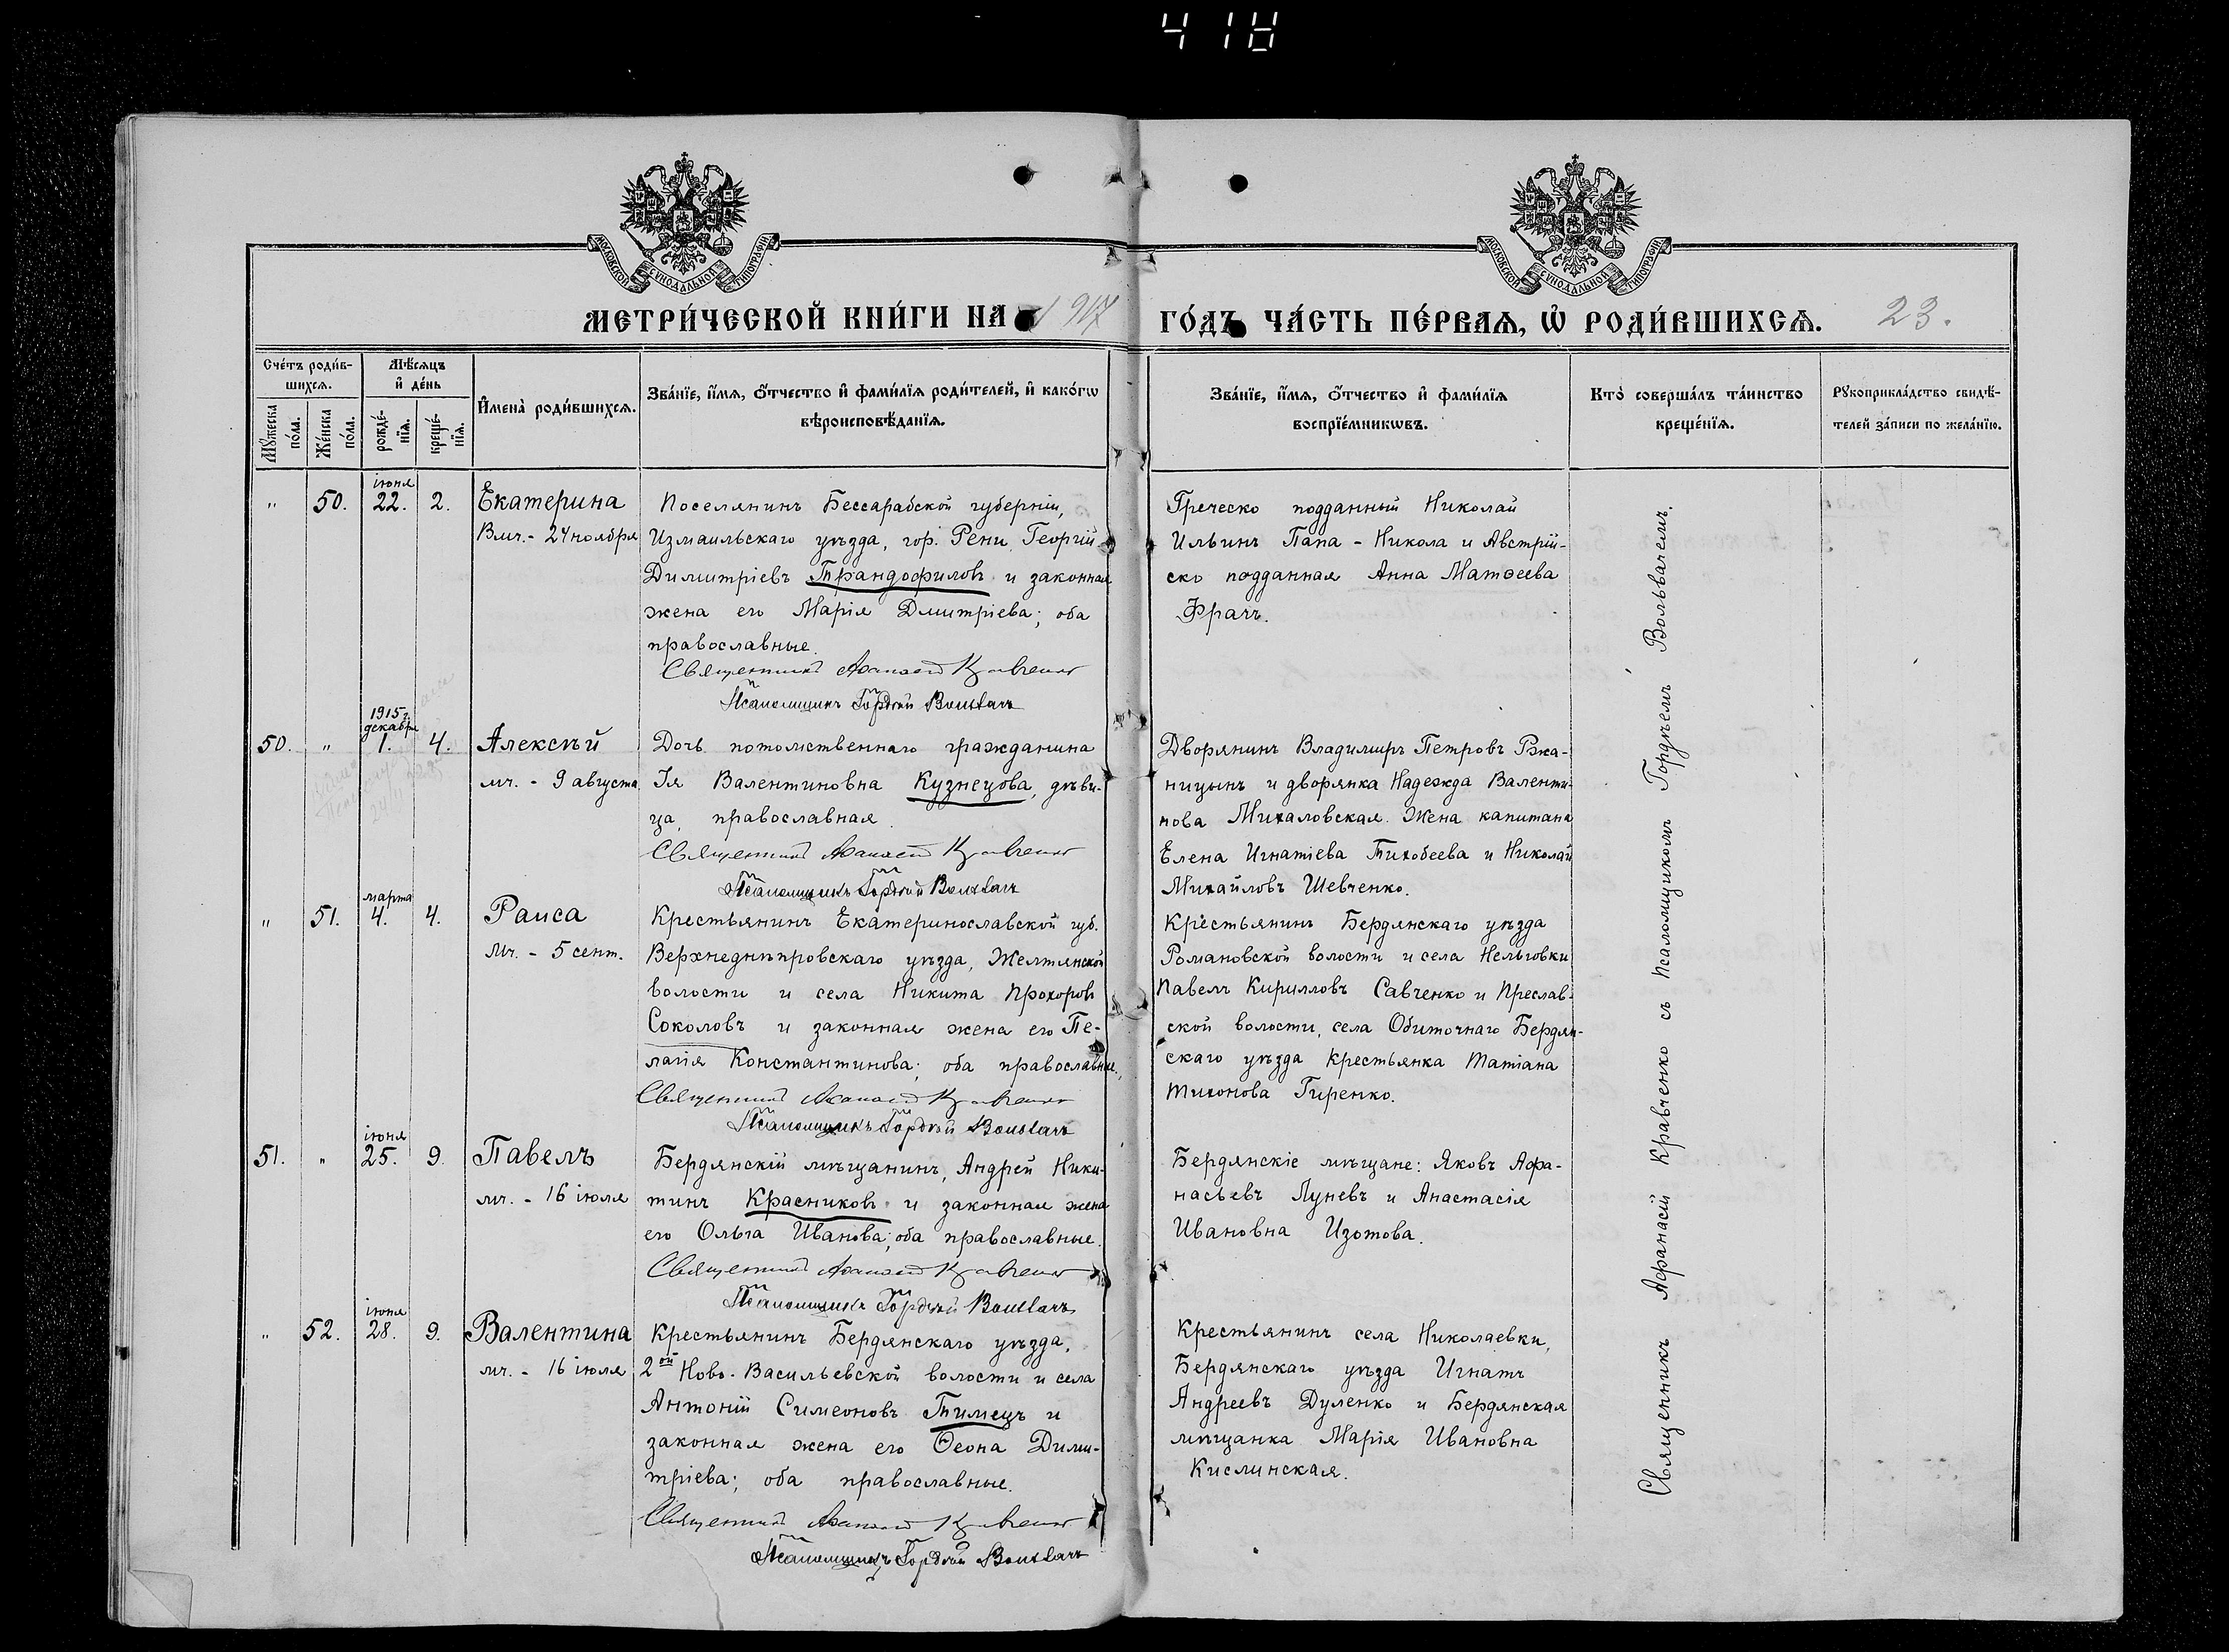 418
МОСКОВСКОЙ СѴНОДАЛЬНОЙ ТИПОГРАФІИ
МОСКОВСКОЙ СѴНОДАЛЬНОЙ ТИПОГРАФІИ
МЕТРИ́ЧЕСКОЙ КНИ́ГИ НА 1917 ГО́ДЪ ЧА́СТЬ ПЕ́РВАѦ, Ѡ҆ РОДИ́ВШИХСѦ. 23.
Сче́тъ роди́в-
шихсѧ.
Мꙋ́жеска по́ла.
Же́нска по́ла.
Мѣ́сѧцъ
и҆ де́нь
рожде́-
нїѧ.
креще́-
нїѧ.
И҆мена̀ роди́вшихсѧ.
Зва́нїе, и҆́мѧ, ѻ҆́тчество и҆ фами́лїѧ роди́телей, и҆ како́гѡ
вѣроисповѣ́данїѧ.
Зва́нїе, и҆́мѧ, ѻ҆́тчество и҆ фами́лїѧ
воспрїе́мникѡвъ.
Кто̀ соверша́лъ та́инство
креще́нїѧ.
Рꙋкоприкла́дство свидѣ́-
телей за́писи по жела́нїю.
іюня
" 50. 22. 2. Екатерина
Вмч. - 24 ноября
Поселянинъ Бессарабской губерніи,
Измаильскаго уѣзда, гор. Рени Георгій
Димитріевъ Трандофиловъ и законная
жена его Марія Дмитріева; оба
православные.
Священникъ Аѳанасій Кравченко
Псаломщикъ Гордѣй Вольвачъ
Греческо подданный Николай
Ильинъ Папа - Никола и Австрій-
ско подданная Анна Матѳеева
Фрачъ.
1915 г.
декабря
50. " 1. 4. Алексѣй
мч. - 9 августа.
Дочь потомственнаго гражданина
Ія Валентиновна Кузнецова, дѣви-
ца, православная
Священникъ Аѳанасій Кравченко
Псаломщикъ Гордѣй Вольвачъ
Дворянинъ Владимиръ Петровъ Ржа-
ницынъ и дворянка Надежда Валенти-
нова Михаловская. Жена капитана
Елена Игнатіева Тихобеева и Николай
Михайловъ Шевченко.
марта
" 51. 4. 4. Раиса
мч. - 5 сент.
Крестьянинъ Екатеринославской губ.
Верхнеднѣпровскаго уѣзда, Желтянской
волости и села Никита Прохоровъ
Соколовъ и законная жена его Пе-
лагія Константинова; оба православные.
Священникъ Аѳанасій Кравченко
Псаломщикъ Гордѣй Вольвачъ
Крестьянинъ Бердянскаго уѣзда
Романовской волости и села Нельговки
Павелъ Кирилловъ Савченко и Преслав-
ской волости, села Обиточнаго Бердян-
скаго уѣзда крестьянка Татіана
Тихонова Гиренко.
іюня
51. " 25. 9. Павелъ
мч. - 16 іюля
Бердянскій мѣщанинъ, Андрей Ники-
тинъ Красниковъ и законная жена
его Ольга Иванова; оба православные.
Священникъ Аѳанасій Кравченко
Псаломщикъ Гордѣй Вольвачъ
Бердянскіе мѣщане: Яковъ Афа-
насьевъ Луневъ и Анастасія
Ивановна Изотова.
іюня
" 52. 28. 9. Валентина
мч. - 16 іюля
Крестьянинъ Бердянскаго уѣзда,
2ой Ново-Васильевской волости и села
Антоній Симеоновъ Тимецъ и
законная жена его Ѳеона Дими-
тріева; оба православные.
Священникъ Аѳанасій Кравченко
Псаломщикъ Гордѣй Вольвачъ
Крестьянинъ села Николаевки,
Бердянскаго уѣзда Игнатъ
Андреевъ Дуленко и Бердянская
мѣщанка Марія Ивановна
Кислинская.
Священникъ Афанасій Кравченко съ псаломщикомъ Гордѣемъ Вольвачемъ.